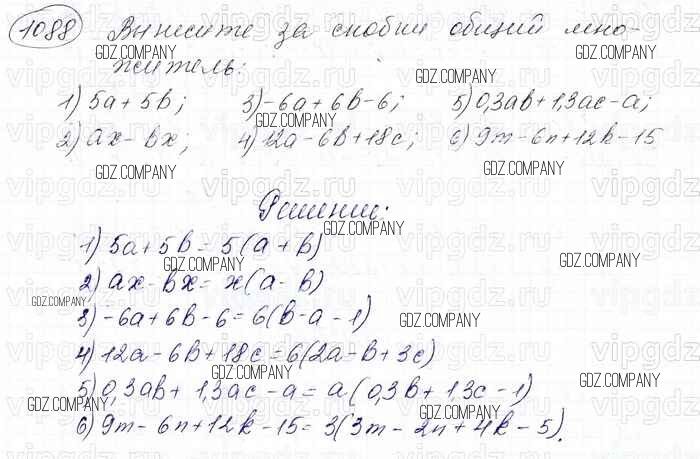 1088 Вынесите за скобки общий мно-
житель:
1) 5a + 5b; 3) -6a + 6b - 6; 5) 0,3ab + 1,3ac - a;
2) ax - bx; 4) 12a - 6b + 18c; 6) 9m - 6n + 12k - 15
Решение:
1) 5a + 5b = 5(a + b)
2) ax - bx = x(a - b)
3) -6a + 6b - 6 = 6(b - a - 1)
4) 12a - 6b + 18c = 6(2a - b + 3c)
5) 0,3ab + 1,3ac - a = a(0,3b + 1,3c - 1)
6) 9m - 6n + 12k - 15 = 3(3m - 2n + 4k - 5).